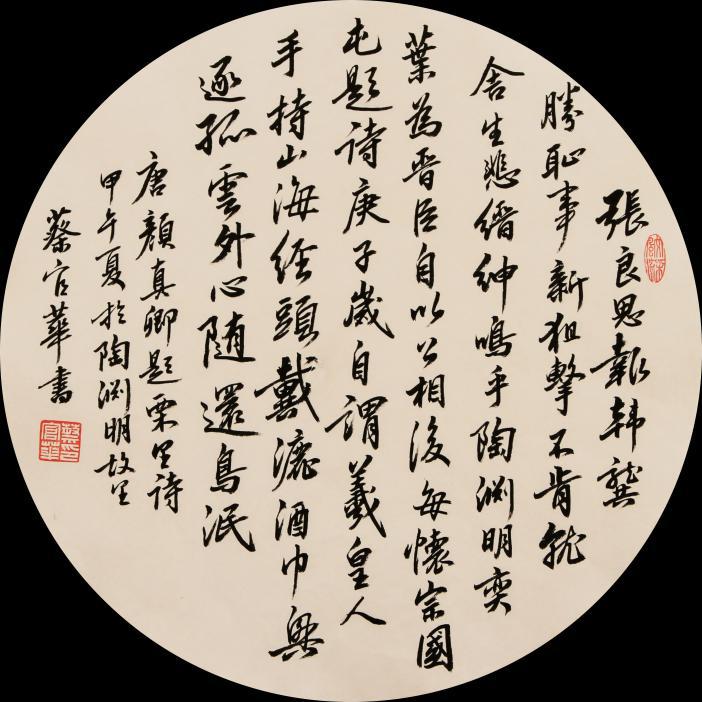 張良思報韩龔
勝恥事新狙擊不肯就
舍生悲缙绅鳴乎陶渊明奕
葉為晋臣自以公相後每懷宗國
屯题诗庚子歲自謂羲皇人
手持山海经頭戴漉酒巾興
逐孤雲外心随還鳥泯
唐颜真卿题栗里诗
甲午夏於陶渊明故里
蔡官華書